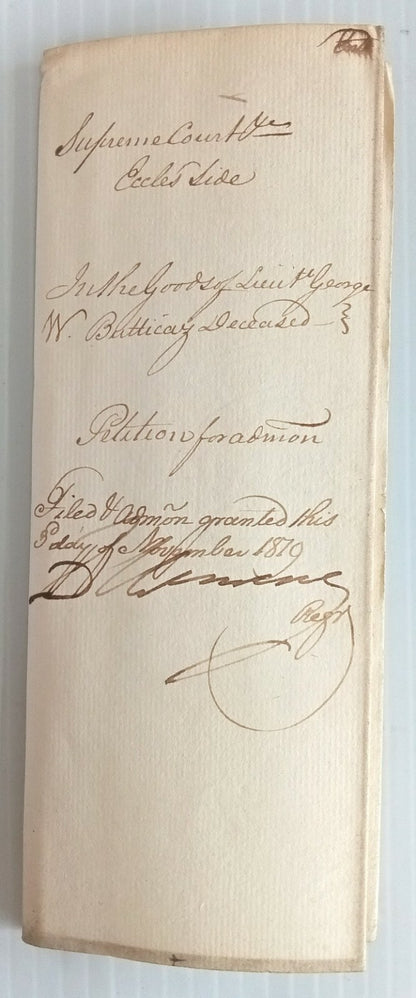 Supreme Court &c
Eccles Side
In the Goods of Lieut George
W. Butticaz Deceased
Petition for admōn
Filed & Admōn granted this
day of November 1819
D
Regr